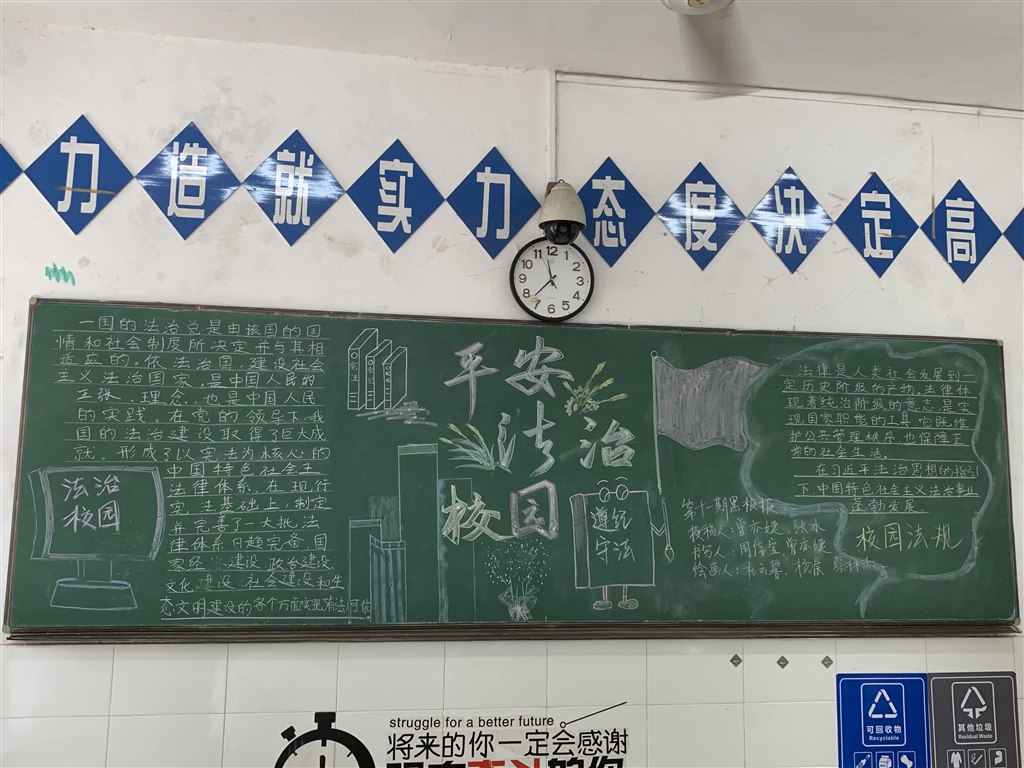 力造就实力态度决定高
12 1 2 3 4 5 6 7 8 9 10 11
一国的法治总是由该国的国
情和社会制度所决定并与其相
适应的。依法治国,建设社会
主义法治国家,是中国人民的
主张、理念,也是中国人民
的实践。在党的领导下,我
国的法治建设取得了巨大成
就。形成了以宪法为核心的
中国特色社会主
法律体系,在现行
宪法基础上,制定
并完善了一大批法
律体系日趋完备,国
家经 建设,政治建设
文化建设,社会建设和生
态文明建设的各个方面实现有法可依
法治
校园
平安
法治
校园
遵纪
守法
法律是人类社会发展到一
定历史阶级的产物,法律体
现着统治阶级的意志,是实
现国家职能的工具,它既维
护公共管理秩序,也保障正
常的社会生活。
在习近平法治思想的指引
下,中国特色社会主义法治事业
蓬勃发展。
校园法规
第十一期黑板报
struggle for a better future
将来的你一定会感谢
可回收物
Recyclable
其他垃圾
Residual Waste